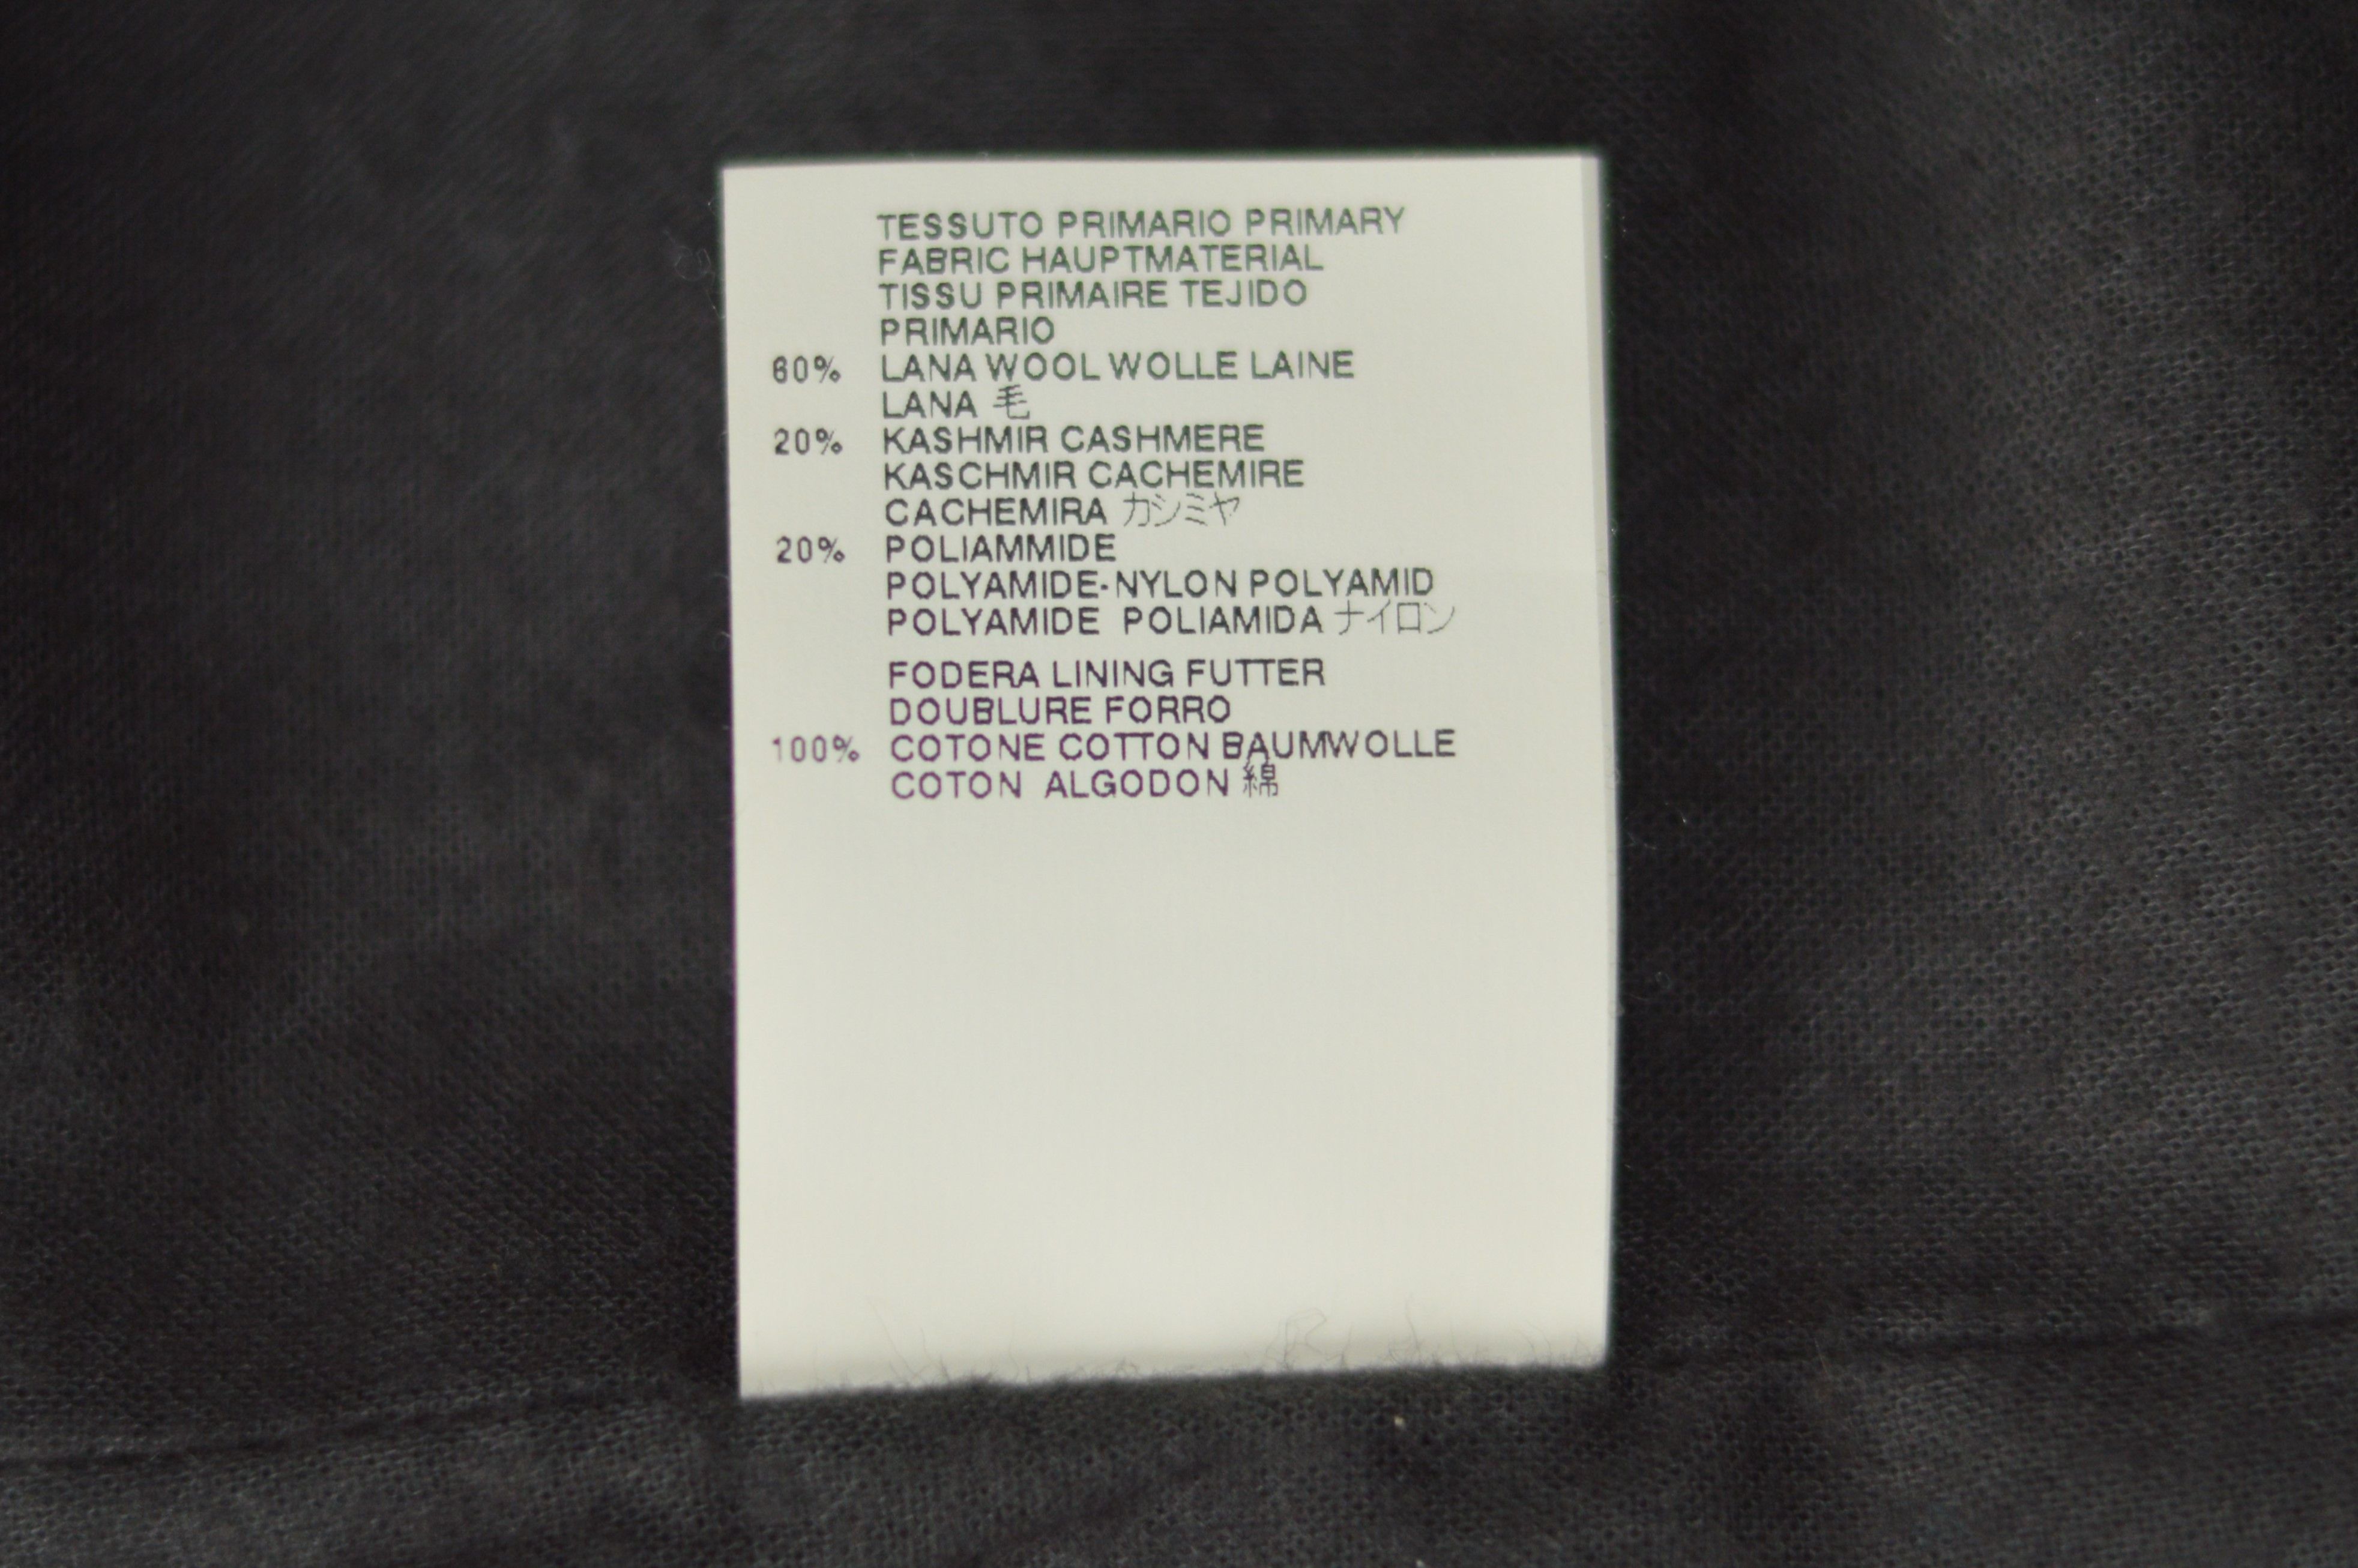 TESSUTO PRIMARIO PRIMARY
FABRIC HAUPTMATERIAL
TISSU PRIMAIRE TEJIDO
PRIMARIO
60% LANA WOOL WOLLE LAINE
LANA 毛
20% KASHMIR CASHMERE
KASCHMIR CACHEMIRE
CACHEMIRA カシミヤ
20% POLIAMMIDE
POLYAMIDE-NYLON POLYAMID
POLYAMIDE POLIAMIDA ナイロン
FODERA LINING FUTTER
DOUBLURE FORRO
100% COTONE COTTON BAUMWOLLE
COTON ALGODON 綿